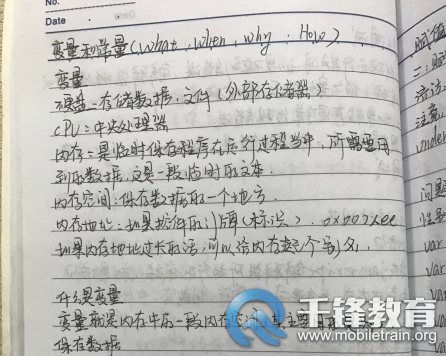 No.
Date
变量和常量(What, When, why, How)
变量
硬盘:存储数据,文件(外部存储器)
CPU:中央处理器
内存:是临时保存程序在运行过程当中,所需要用
到的数据,它是一段临时的文本.
内存空间:保存数据的一个地方.
内存地址:
(标识). 0x
如果内存地址过长的话,可以给内存起个别名.
什么是变量
变量就是内存中的一段内存空间,主要用
保存数据
赋值
二:
语法
注意
undef
问题
var
var
var
var
千锋教育
www.mobiletrain.org